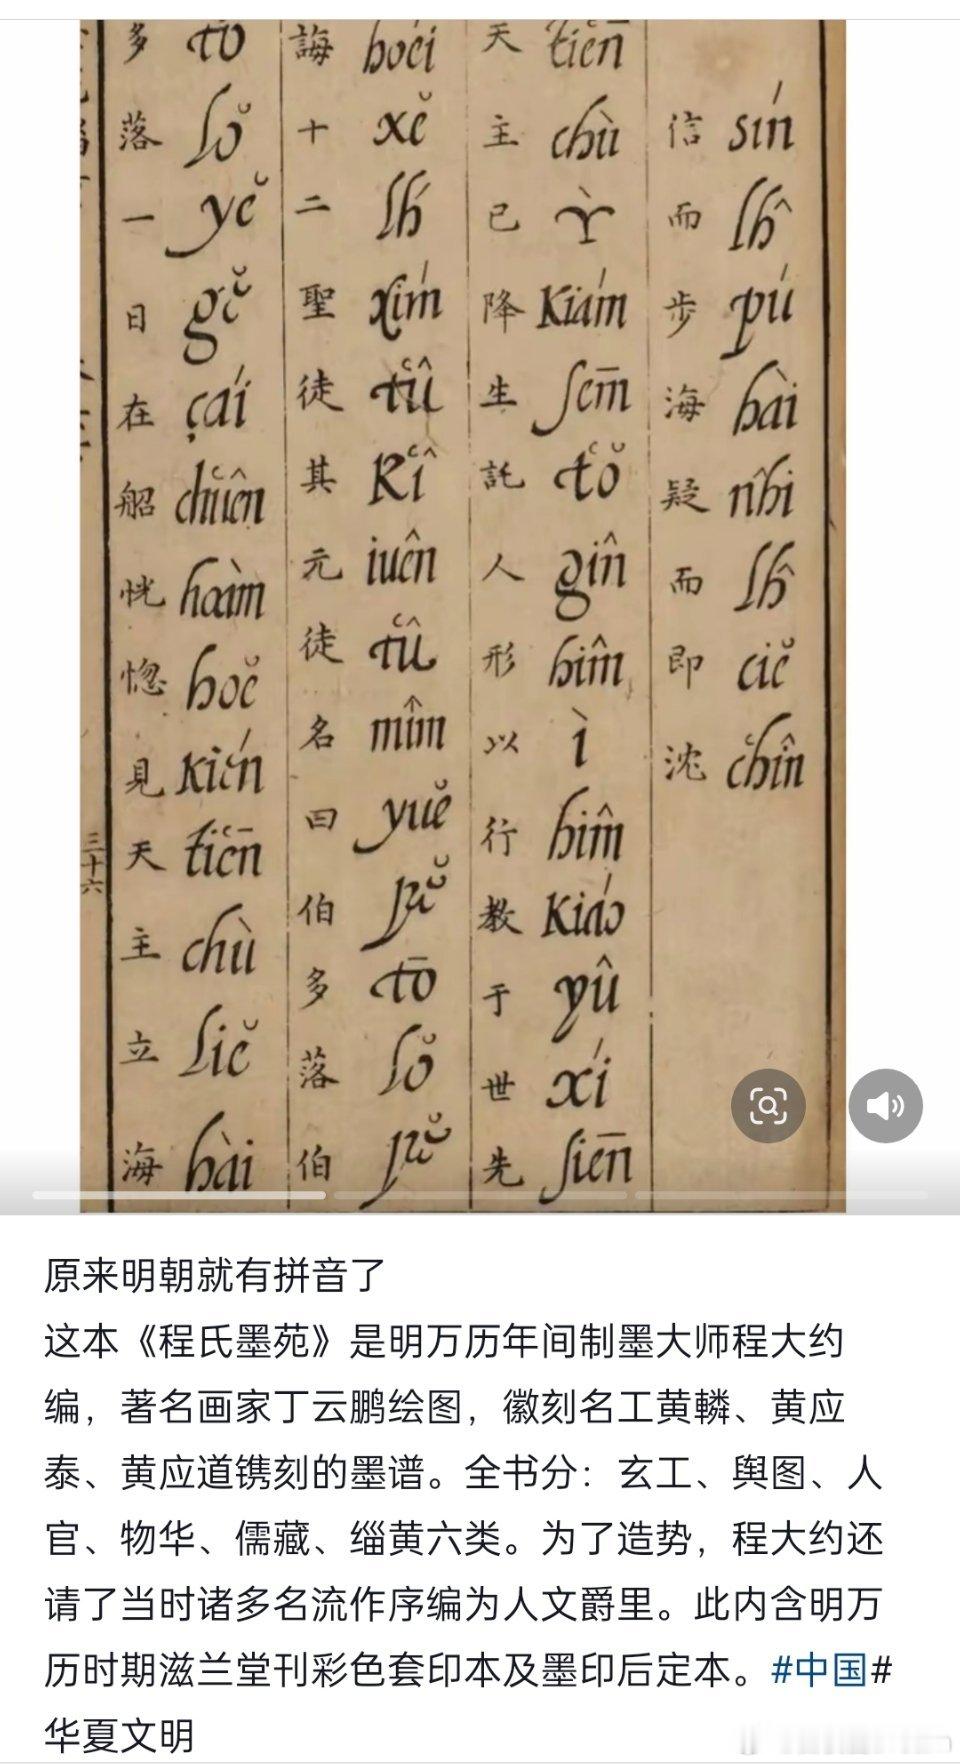 信 sín 而 lĥ 步 pú 海 hài 疑 nhî 而 lĥ 即 ciĕ 沈 chîn
天 tiēn 主 chù 已 ỳ 降 Kiám 生 ſēm 託 tŏ 人 gîn 形 hîm 以 ì 行 hîm 教 Kiáo 于 yû 世 xí 先 ſiēn
誨 hoéi 十 xĕ 二 lh́ 聖 xím 徒 tû 其 Kî 元 iuên 徒 tû 名 mîm 曰 yuĕ 伯 pĕ 多 tō 落 lŏ 伯 pĕ
多 tō 落 lŏ 一 yĕ 日 gĕ 在 çái 船 chuên 恍 hoàm 惚 hoĕ 見 Kién 天 tiēn 主 chù 立 liĕ 海 hài
三十六
原来明朝就有拼音了
这本《程氏墨苑》是明万历年间制墨大师程大约
编，著名画家丁云鹏绘图，徽刻名工黄轔、黄应
泰、黄应道镌刻的墨谱。全书分：玄工、舆图、人
官、物华、儒藏、缁黄六类。为了造势，程大约还
请了当时诸多名流作序编为人文爵里。此内含明万
历时期滋兰堂刊彩色套印本及墨印后定本。#中国#
华夏文明